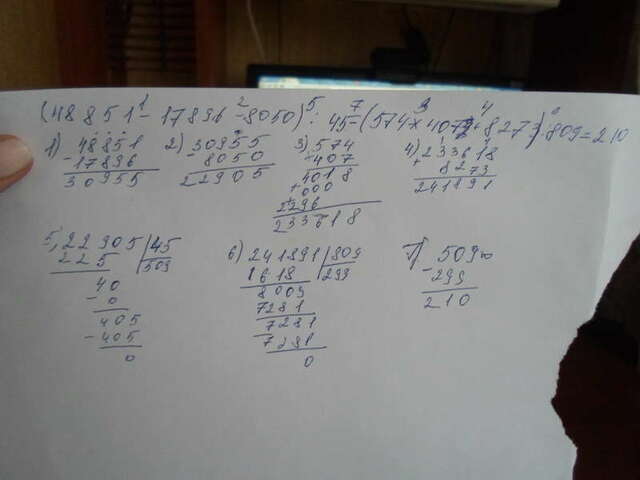 (48851 - 17896 - 8050) : 45 - (574 × 407 + 8273) : 809 = 210
1 2 5 7 3 4 6
1) 48851 2) 30955 3) 574 4) 233618
- 17896 - 8050 407 + 8273
30955 22905 4018 241891
+ 000
2296
233618
5) 22905 | 45 6) 241891 | 809 7) 509
225 | 509 1618 | 299 - 299
40 8009 210
- 0 7281
405 7281
- 405 7281
0 0